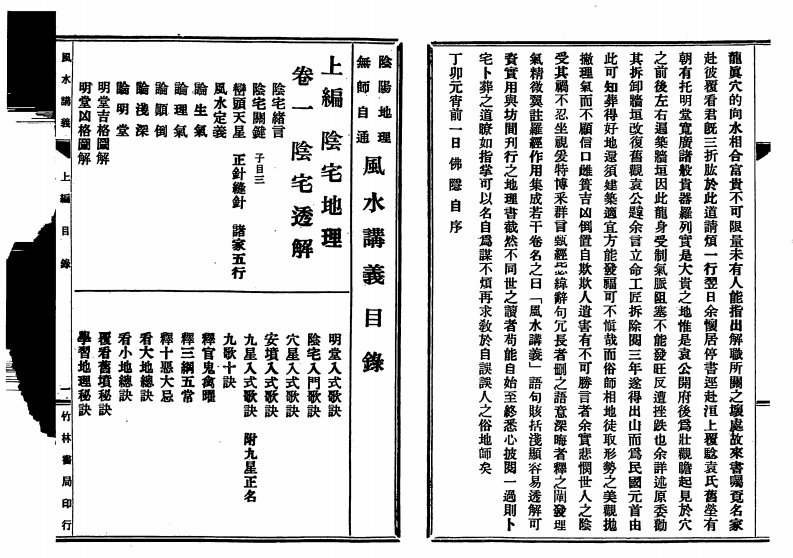 龍眞穴的向水相合富貴不可限量未有人能指出解職所關之壞處故來書囑覓名家
赴彼覆看君既三折肱於此道請煩一行翌日余懷居停書逕赴洹上覆騐袁氏舊塋有
朝有托明堂寬廣諸般貴器羅列實是大貴之地惟是袁公開府後為壯觀瞻起見於穴
之前後左右遍築牆垣因此龍身受制氣脈阻塞不能發旺反遭挫跌也余詳述原委勸
其拆卸牆垣改復舊觀袁公韙余言立命工匠拆除閱三年遂得出山而為民國元首由
此可知葬得好地還須建築適宜方能發福可不愼哉而俗師相地徒取形勢之美觀拋
撇理氣而不顧信口雌簧吉凶倒置自欺欺人遺害有不可勝言者余實悲憫世人之陰
受其禍不忍坐視爰特博釆群言甄經比緯辭句冗長者刪之語意深晦者釋之闡發理
氣精微翼註羅經作用集成若干卷名之曰「風水講義」語句賅括淺顯容易透解可
資實用與坊間刊行之地理書截然不同世之讀者苟能自始至終悉心披閱一過則卜
宅卜葬之道瞭如指掌可以名自為謀不煩再求敎於自誤誤人之俗地師矣
丁卯元宵前一日佛隱自序
陰陽地理
無師自通
風水講義目錄
上編 陰宅地理
卷一 陰宅透解
陰宅緒言
陰宅關鍵 子目三
巒頭天星 正針縫針 諸家五行
風水定義
論生氣
論理氣
論顛倒
論淺深
論明堂
明堂吉格圖解
明堂凶格圖解
明堂入式歌訣
陰宅入門歌訣
穴星入式歌訣
安墳入式歌訣
九星入式歌訣 附九星正名
九歌十訣
釋官鬼禽曜
釋三綱五常
釋十惡大忌
看大地總訣
看小地總訣
覆看舊墳秘訣
學習地理秘訣
風水講義
上編目錄
一
竹林書局印行